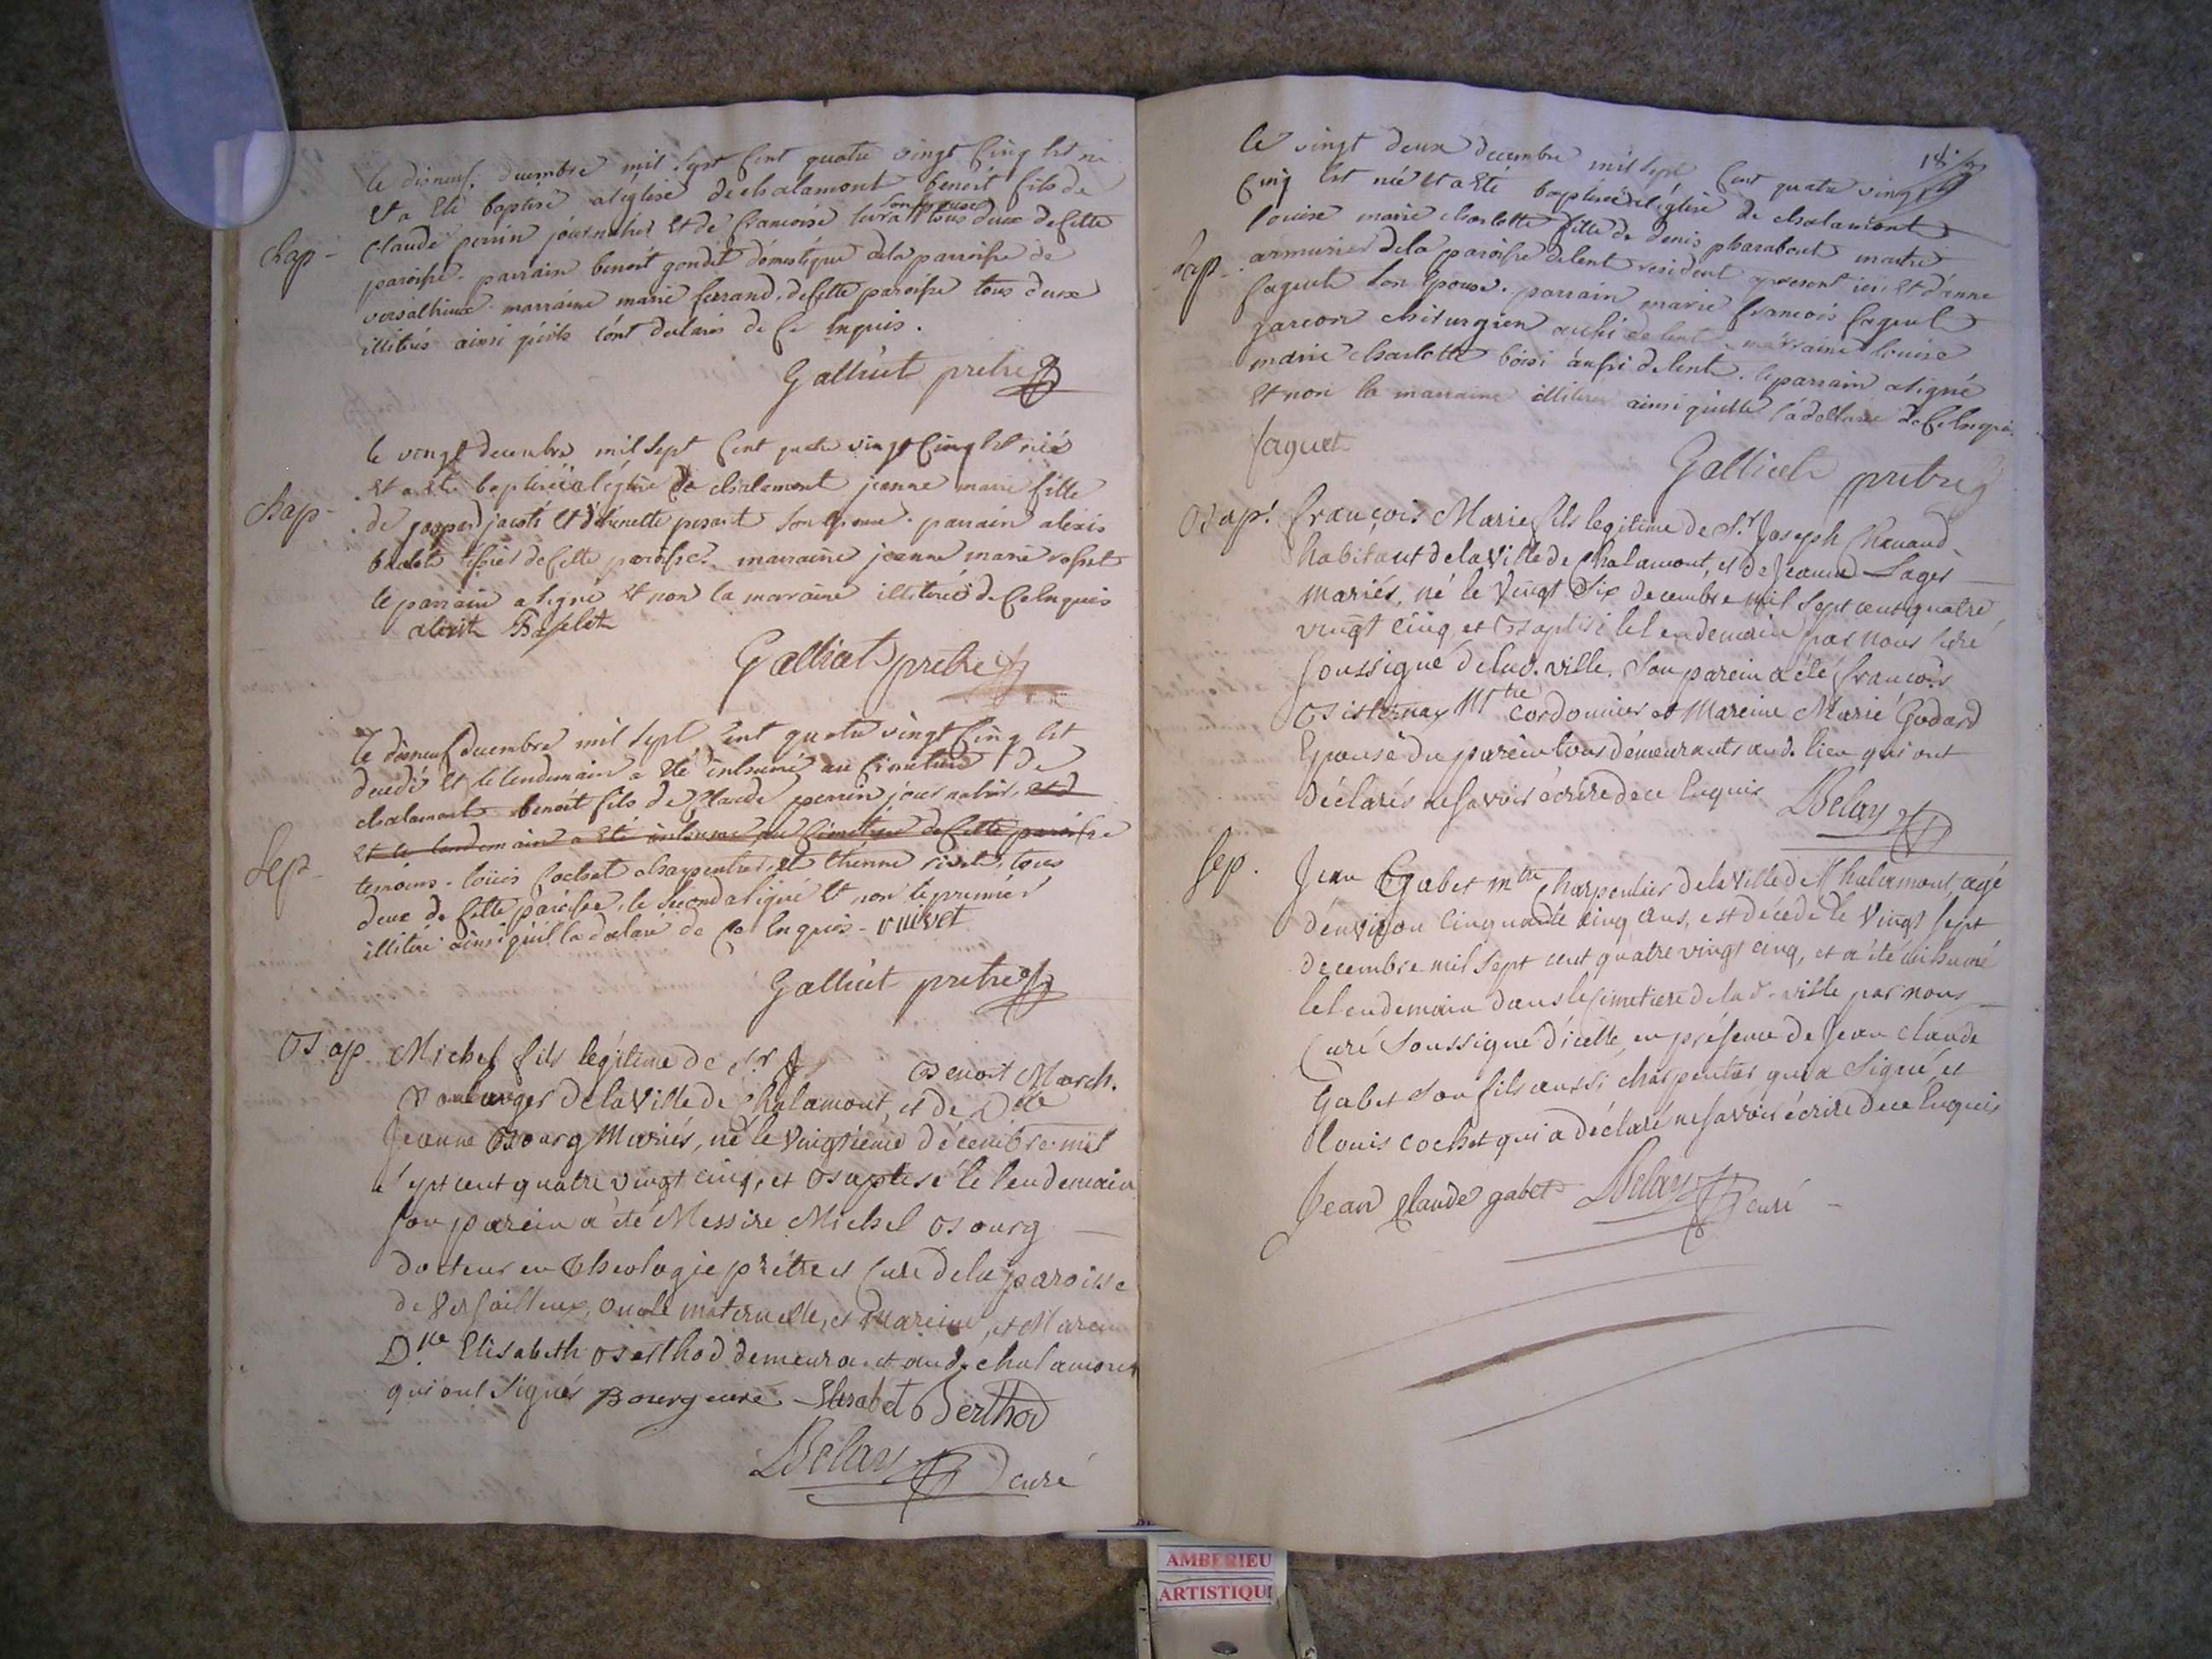 le disneuf decembre mil sept cent quatre vingt cinq est né
et a été baptisé a l'église de chalamont benoit fils de
Bap -
claude perrin journalier et de francoise son epouse tous deux de cette
paroisse. parrain benoit gondet domestique de la parroisse de
versalhieux marraine marie ferrand de cette paroisse tous deux
illiterés ainsi qu'ils l'ont declarés de ce enquis.
Galliat pretre
le vingt decembre mil sept cent quatre vingt cinq est née
et a été baptisée a l'église de chalamont jeanne marie fille
Bap -
de gaspard jacots et d'etiennette son epouse. parrain alexis
tissier de cette paroisse. marraine jeanne marie
le parrain a signé et non la marraine illiterée de ce enquis
Galliat pretre
le disneuf decembre mil sept cent quatre vingt cinq est
decedé et le lendemain a été inhumé au cimetiere de
chalamont benoit fils de Claude perrin journalier, et d
et le lendemain a été inhumé au cimetiere de cette paroisse
Sep -
temoins - loüis cochet charpentier, et etienne tous
deux de cette paroisse, le second a signé et non le premier
illiteré ainsi qu'il l'a declaré de ce enquis -
Galliat pretre
Bap. Michel fils légitime de Sr J Benoit March.
Boulanger de la Ville de Chalamont, et de Dlle
Jeanne Bourg Mariés, né le Vingtieme décembre mil
sept cent quatre vingt cinq, et Baptisé le lendemain
son parein a été Messire Michel Bourg
docteur en Theologie prêtre et Curé de la paroisse
de Versailleux, oncle maternelle, et Mareine, et Marein
Dlle Elisabeth Berthod demeurant aud. chalamont
qui ont Signés Bourg curé Elisabet Berthod
Belay curé
18.
le vingt deux decembre mil sept cent quatre vingt
cinq est née et a été baptisée a l'église de chalamont
louise marie charlotte fille de denis pharabout maitre
Bap -
armurier de la paroisse de lent resident apresent ici, et d'anne
faguet son epouse. parrain marie francois faguet
garcon chirurgien aussi de lent marraine louise
marie charlotte boisi aussi de lent. le parrain a signé
et non la marraine illiterée ainsi qu'elle l'a declarée de ce enquis.
faguet
Galliat pretre
Bap. François Marie fils legitime de Sr Joseph Chanand
habitant de la Ville de Chalamont, et de Jeanne Lager
mariés, né le Vingt Six decembre mil sept cent quatre
vingt cinq, et Baptisé le lendemain par nous Curé
soussigné de lad. ville. Son parein a été françois
Bisternay Mtre cordonnier et Mareine Marie Godard
Epouse du parein tous demeurants aud. lieu qui ont
déclarés ne savoir écrire de ce Enquis Belay
Sep. Jean Gabet mtre Charpentier de la Ville de Chalamont, agé
d'environ Cinquante cinq ans, est décédé le Vingt Sept
decembre mil sept cent quatre vingt cinq, et a été inhumé
le lendemain dans le Cimetiere de lad. ville par nous
Curé Soussigné d'icelle, en présence de Jean Claude
Gabet son fils aussi charpentier qui a Signé, et
Louis cochet qui a déclaré ne savoir écrire de ce Enquis
Jean Claude gabet Belay curé
AMBERIEU
ARTISTIQU